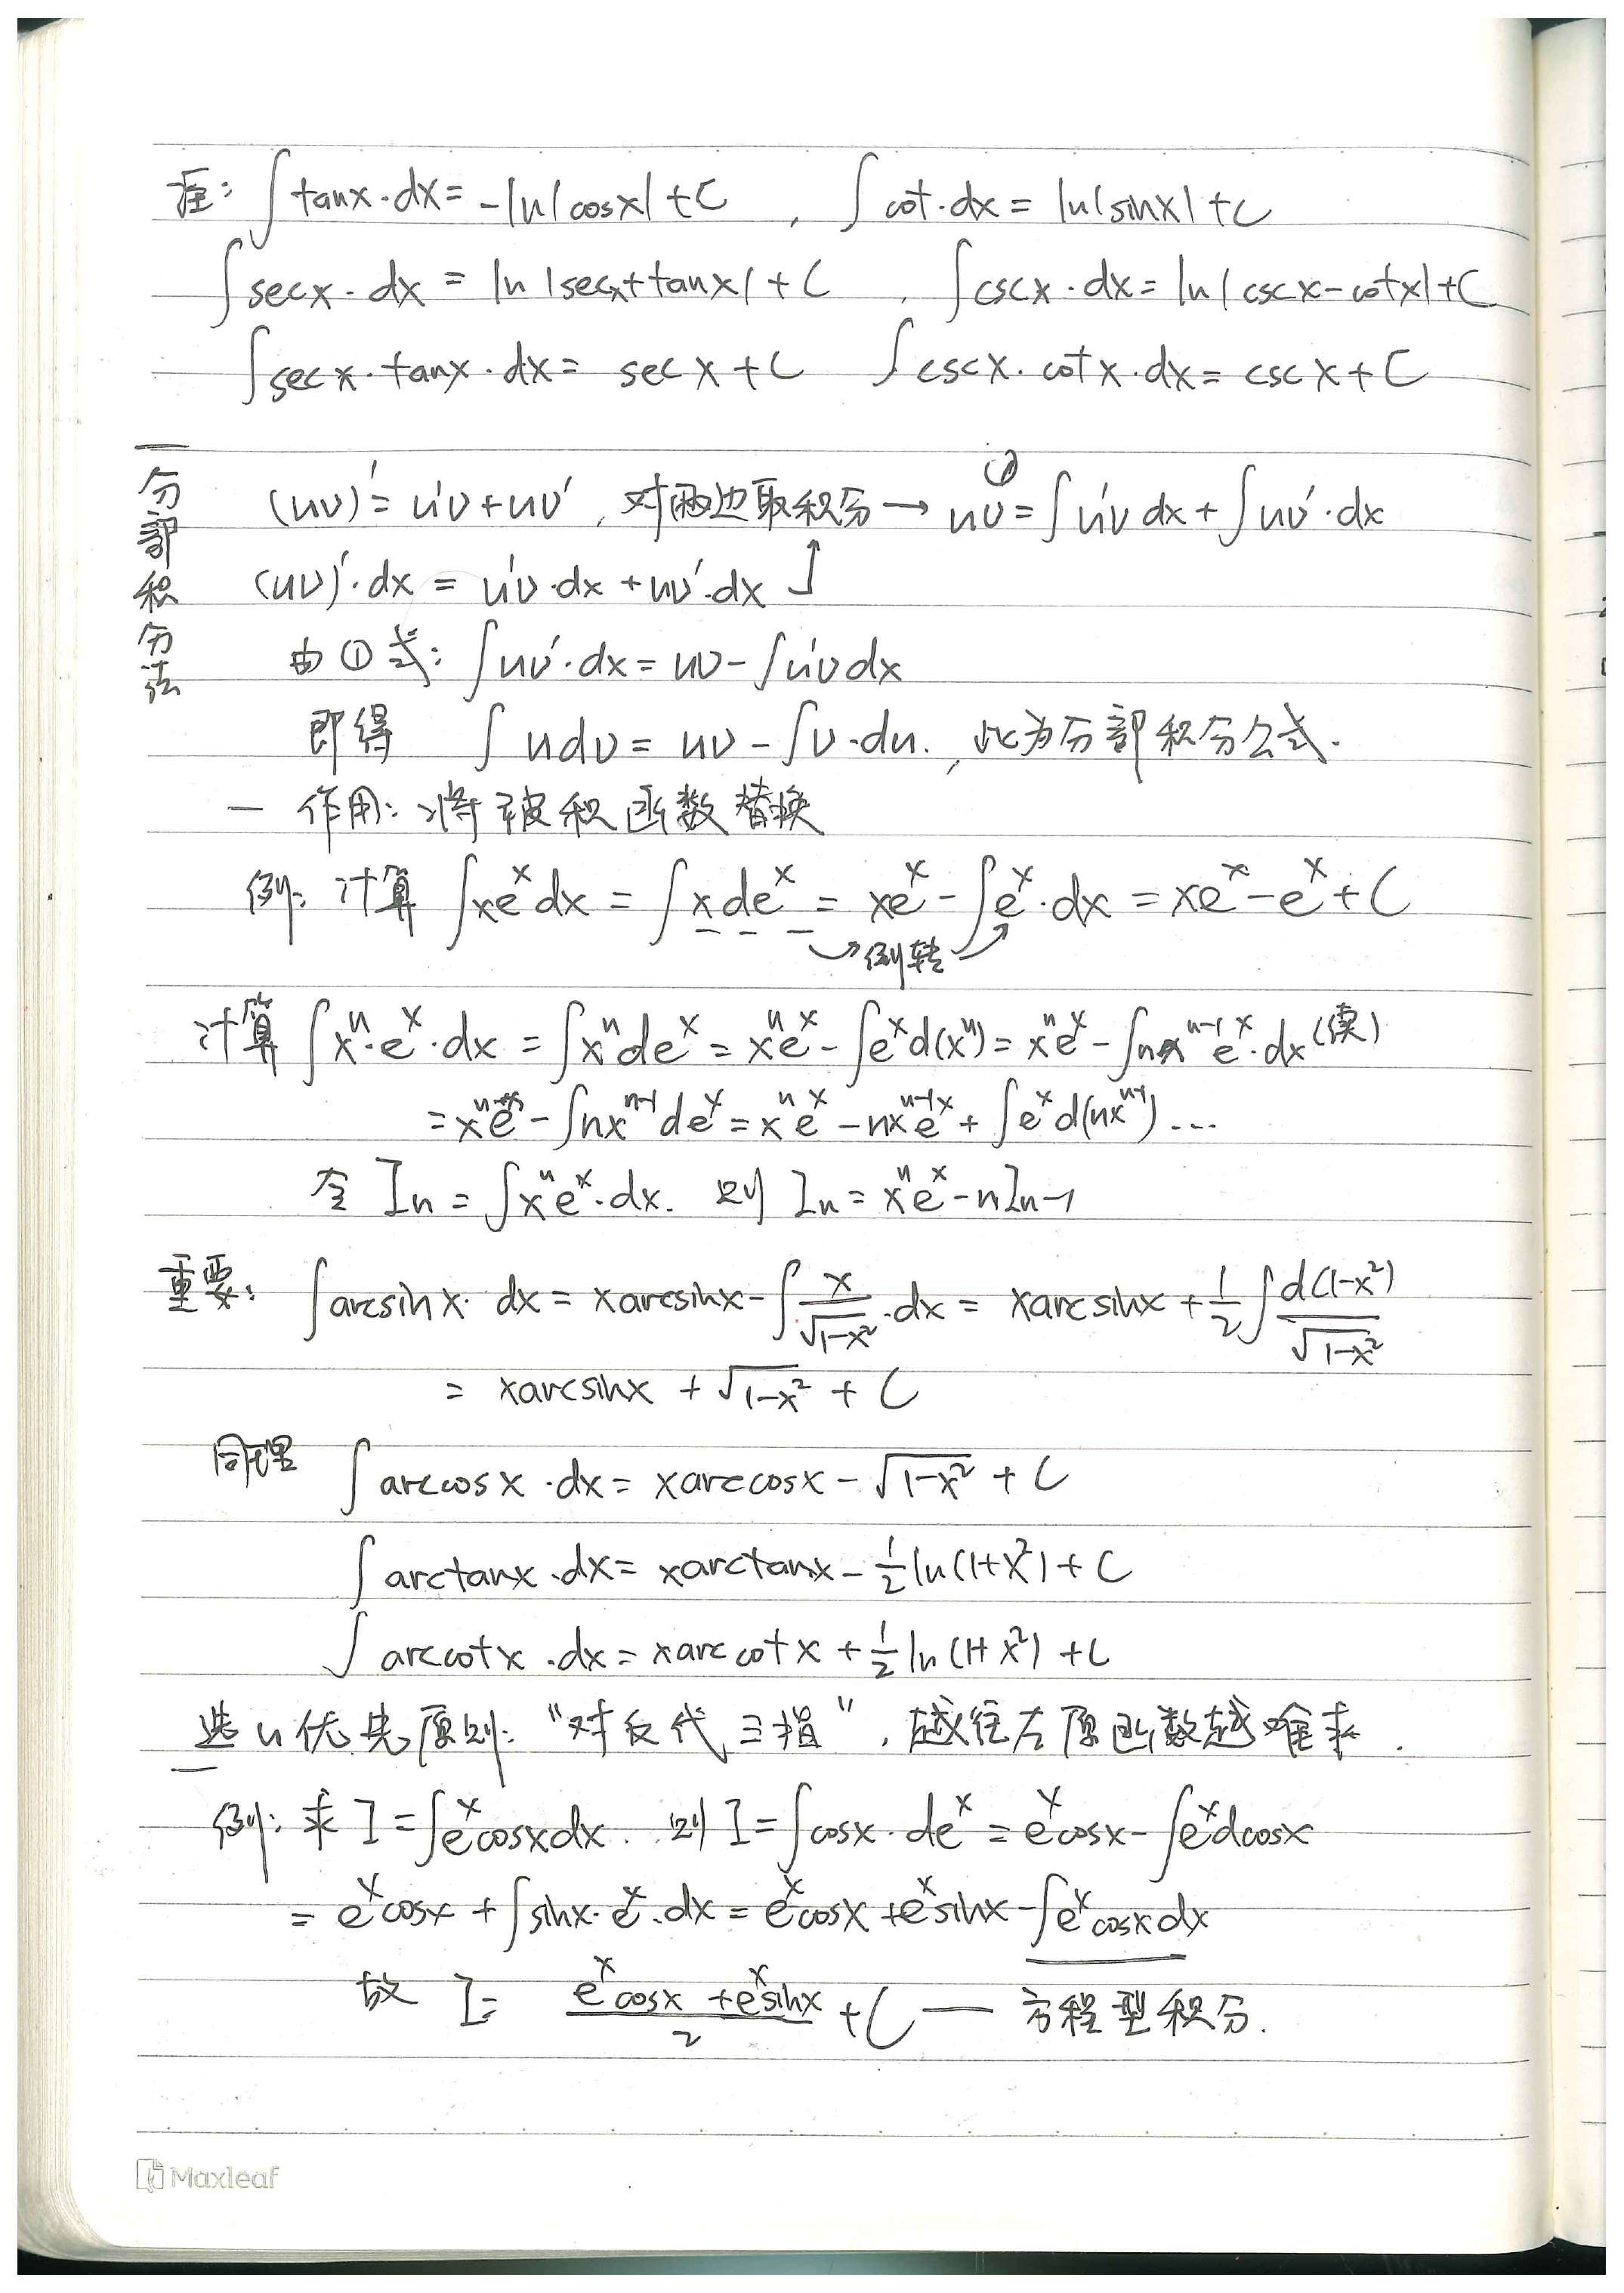 注: ∫tanx·dx = -ln|cosx| + C , ∫cot·dx = ln|sinx| + C
∫secx·dx = ln|secx+tanx| + C , ∫cscx·dx = ln|cscx-cotx| + C
∫secx·tanx·dx = secx + C ∫cscx·cotx·dx = cscx + C
分部积分法
(uv)' = u'v + uv' , 对两边取积分 → uv = ∫u'v dx + ∫uv'·dx ①
(uv)'·dx = u'v·dx + uv'·dx
由①式: ∫uv'·dx = uv - ∫u'v dx
即得 ∫udv = uv - ∫v·du. , 此为分部积分公式.
— 作用: 将被积函数替换
例: 计算 ∫xeˣdx = ∫xdeˣ = xeˣ - ∫eˣ·dx = xeˣ - eˣ + C
倒转
计算 ∫xⁿ·eˣ·dx = ∫xⁿdeˣ = xⁿeˣ - ∫eˣd(xⁿ) = xⁿeˣ - ∫nxⁿ⁻¹eˣ·dx (续)
= xⁿeˣ - ∫nxⁿ⁻¹deˣ = xⁿeˣ - nxⁿ⁻¹eˣ + ∫eˣd(nxⁿ⁻¹) ...
令 Iₙ = ∫xⁿeˣ·dx. 则 Iₙ = xⁿeˣ - nIₙ₋₁
重要: ∫arcsinx·dx = xarcsinx - ∫x/√(1-x²)·dx = xarcsinx + 1/2∫d(1-x²)/√(1-x²)
= xarcsinx + √(1-x²) + C
同理 ∫arccosx·dx = xarccosx - √(1-x²) + C
∫arctanx·dx = xarctanx - 1/2 ln(1+x²) + C
∫arccotx·dx = xarccotx + 1/2 ln(1+x²) + C
选u优先原则: “对反代三指”, 越往左原函数越难求.
例: 求 I = ∫eˣcosxdx. 则 I = ∫cosx·deˣ = eˣcosx - ∫eˣdcosx
= eˣcosx + ∫sinx·eˣ·dx = eˣcosx + eˣsinx - ∫eˣcosxdx
故 I = (eˣcosx + eˣsinx)/2 + C — 方程型积分.
Maxleaf